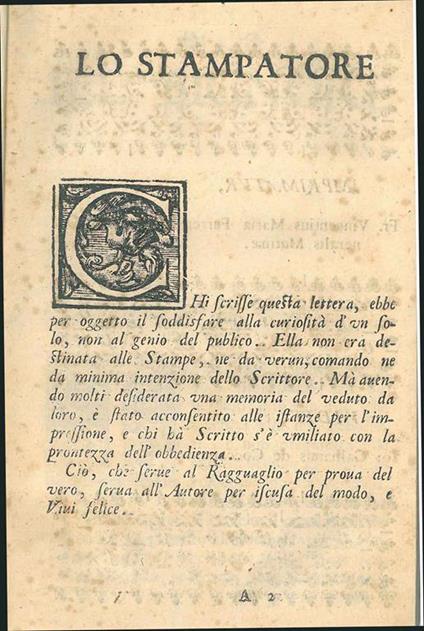 LO STAMPATORE
CHi scrisse questa lettera, ebbe
per oggetto il soddisfare alla curiosità d'vn so-
lo, non al genio del publico.. Ella non era de-
stinata alle Stampe, ne da verun, comando ne
da minima intenzione dello Scrittore.. Mà auen-
do molti desiderata vna memoria del veduto da
loro, è stato acconsentito alle istanze per l'im-
pressione, e chi hà Scritto s'è vmiliato con la
prontezza dell'obbedienza..
Ciò, che serue al Ragguaglio per proua del
vero, serua all'Autore per iscusa del modo, e
Viui felice..
A 2
IMPRIMATVR,
Fr. Vincentius Maria
neralis Mutinæ